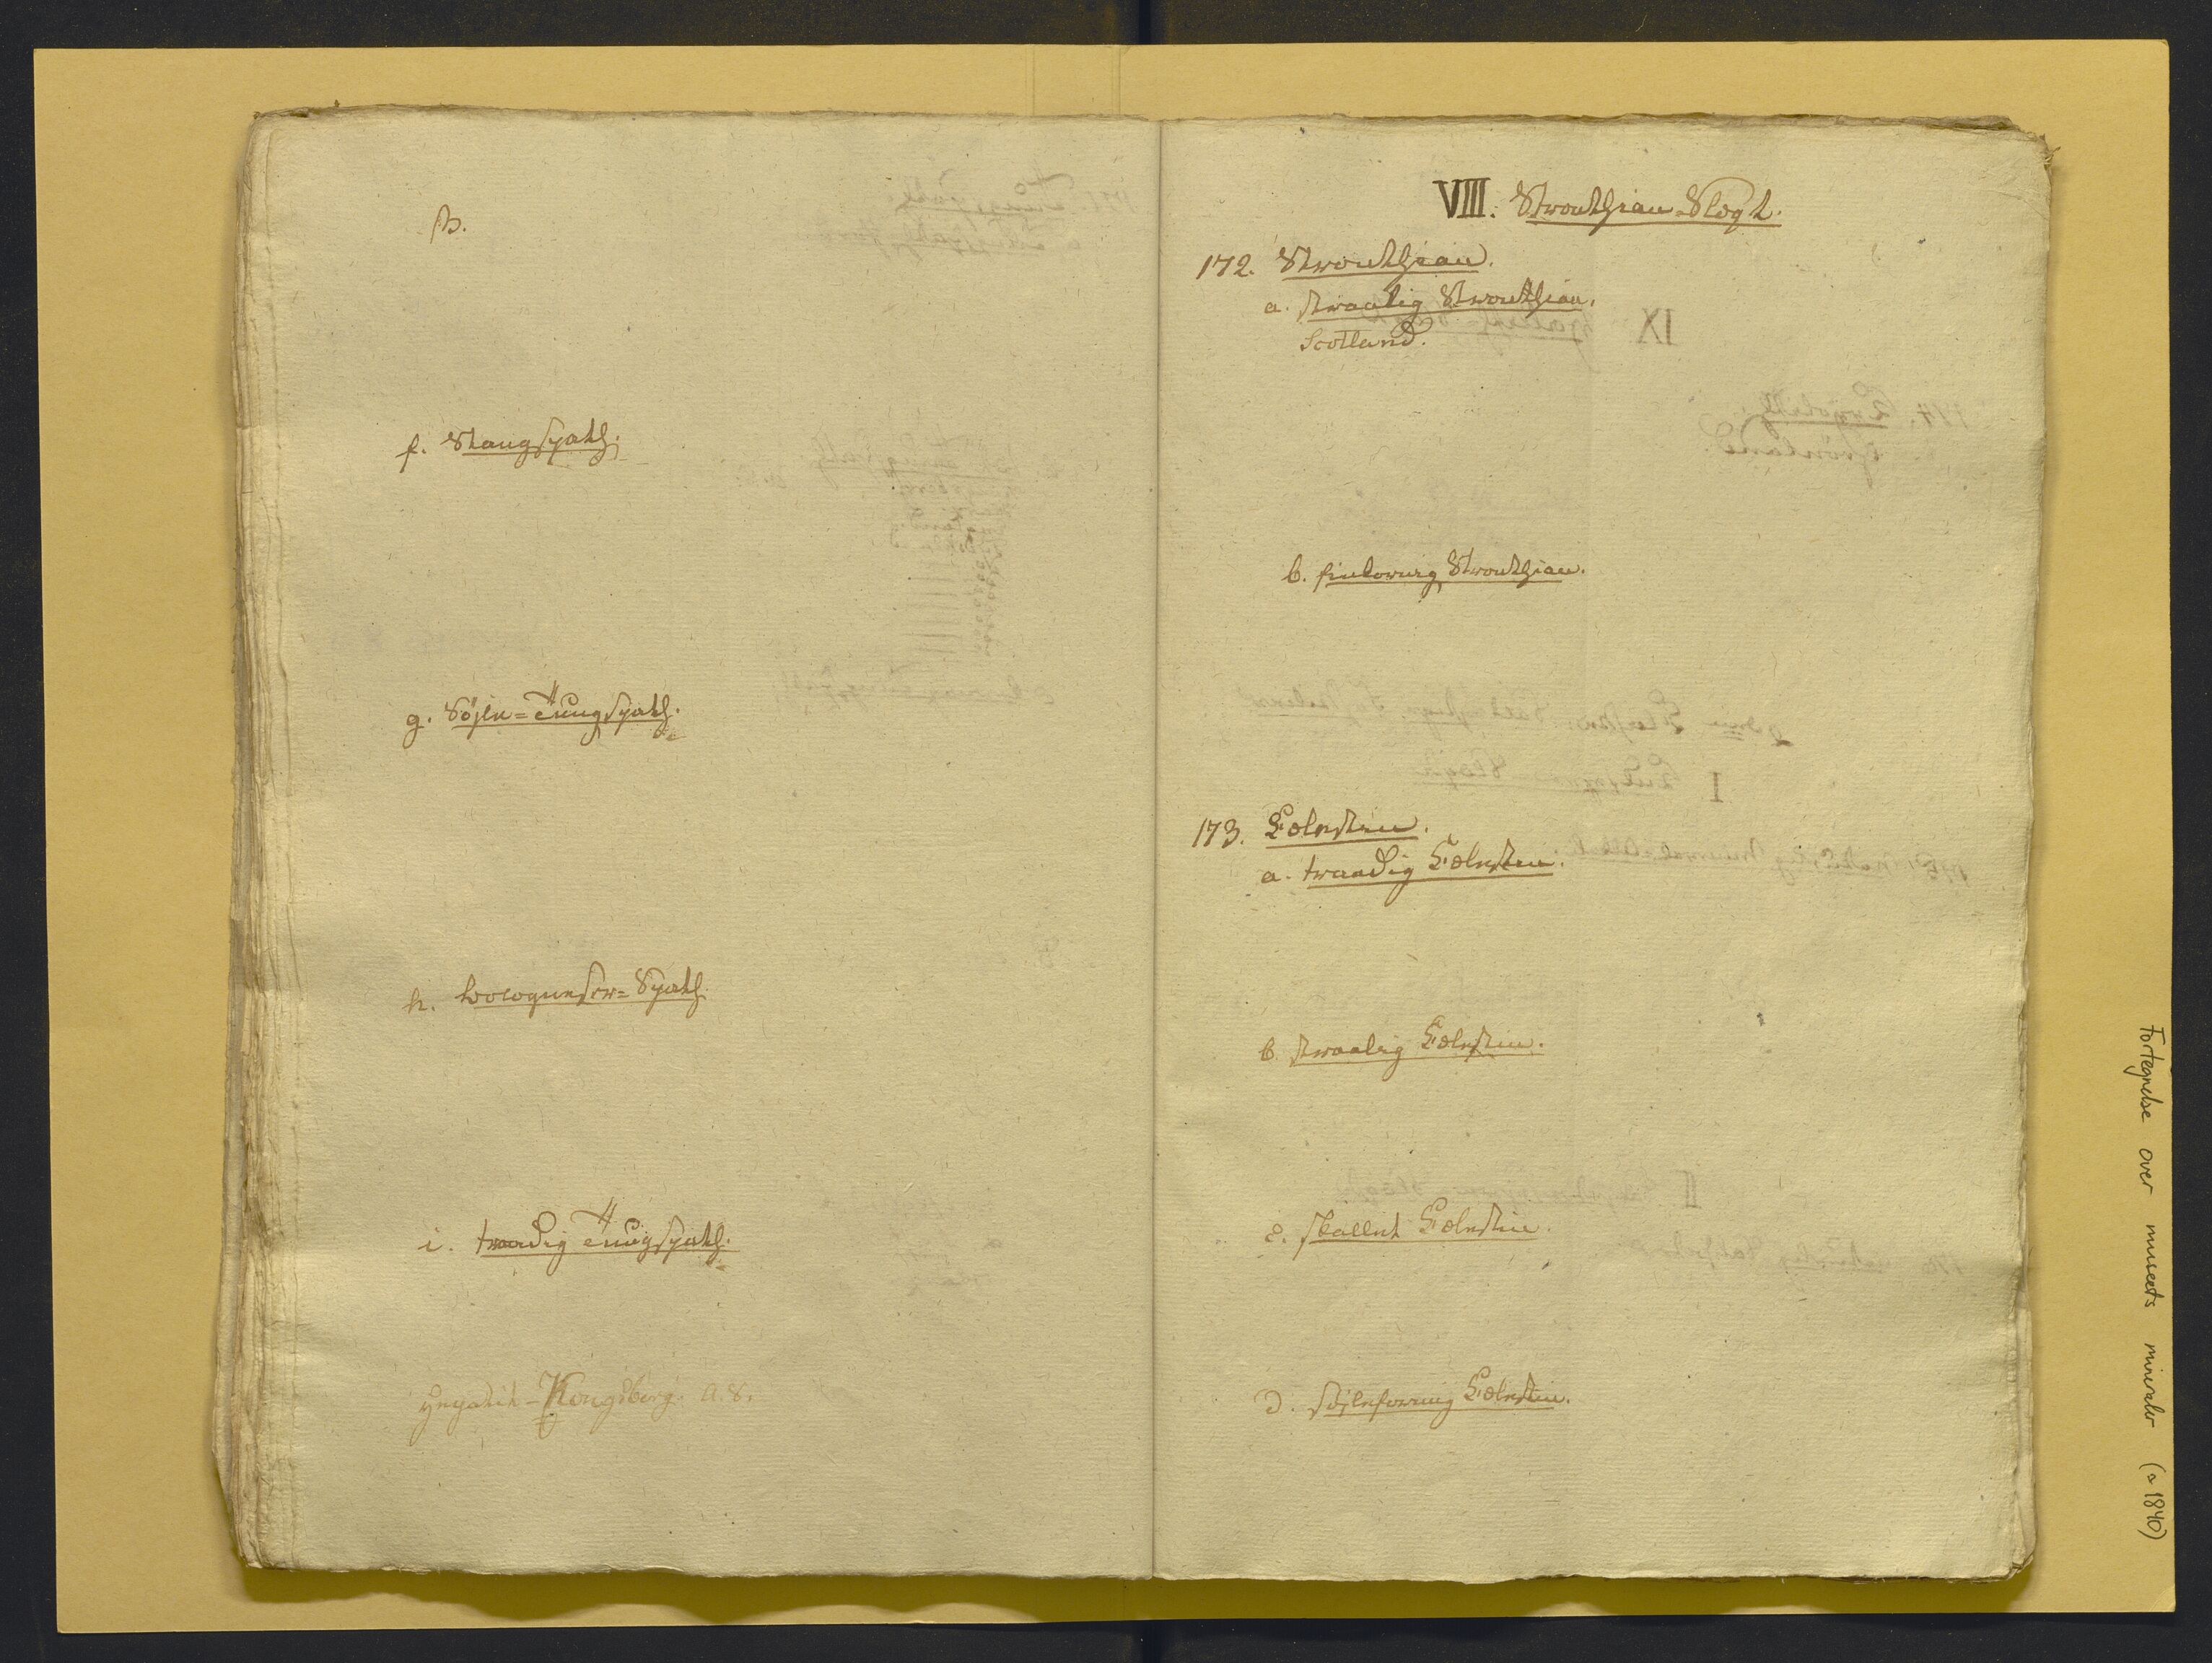 β.
f. Stangspath.
g. Söjle=Tungspath.
h. bologneser=Spath.
i. traadig Tungspath.
Kongsberg. a. 8.
VIII. Stronthian-Slægt.
172. Stronthian.
a. straalig Stronthian.
Scotland.
b. stronthian.
173. Cölestin.
a. traadig Cölestin.
b. straalig Cölestin.
c. skallet Cölestin.
d. söjleformig Cölestin.
Fortegnelse over museets mineraler (ca 1840)